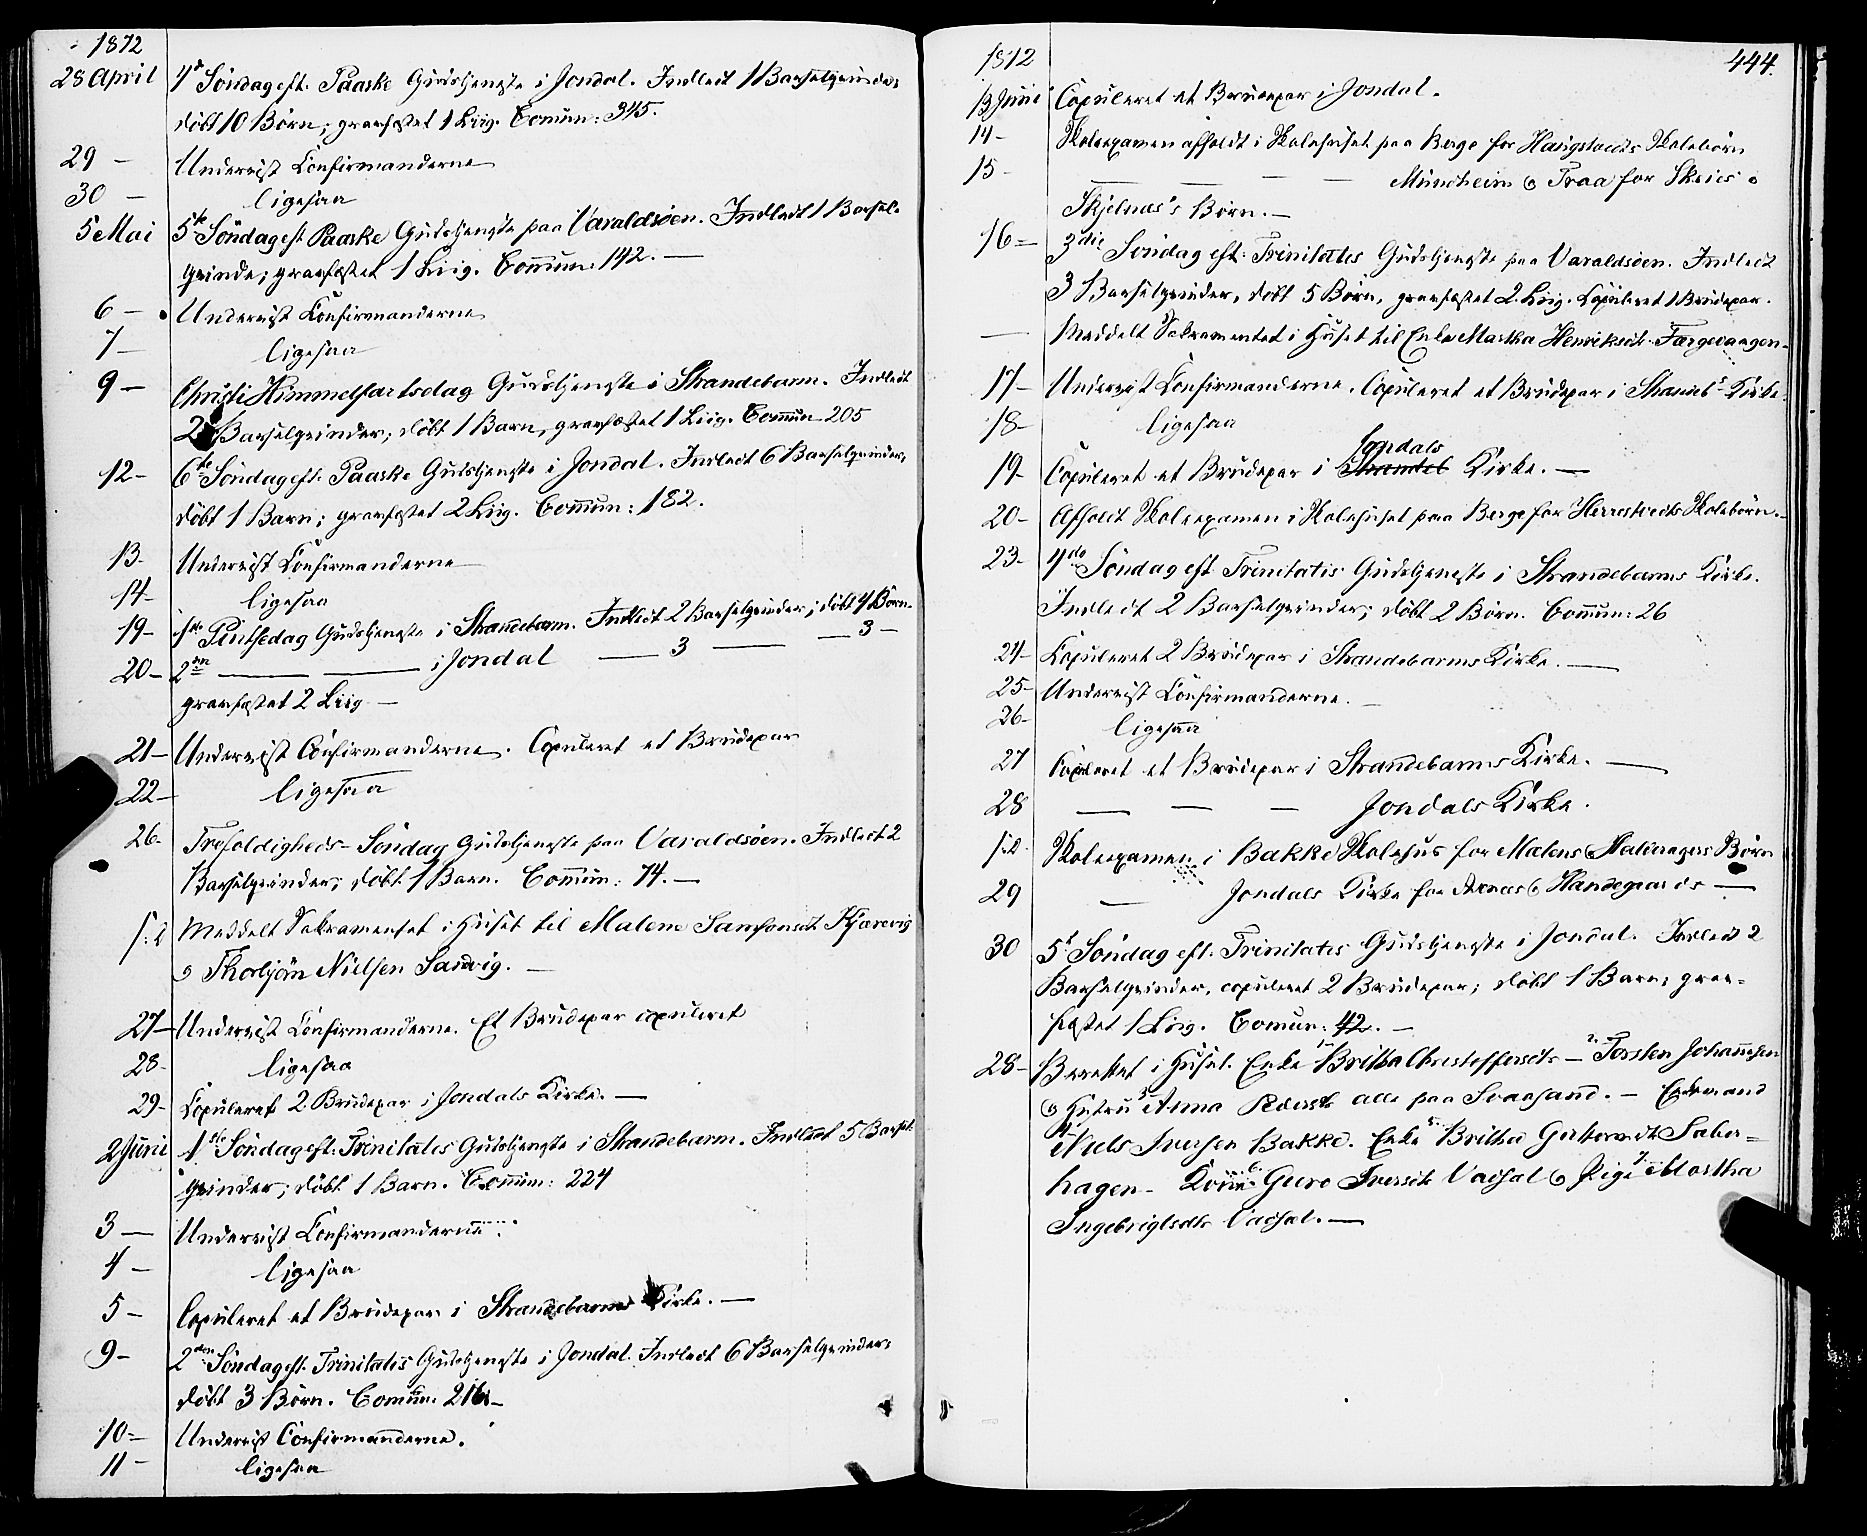 1872
28 April 4d Søndag eft. Paaske Gudstjeneste i Jondal. Indledt 1 Barselqvinde;
døbt 10 Børn; gravfæstet 1 Liig. Commun: 345.
29 — Underviist Confirmanderne
30 — ligesaa
5 Mai 5te Søndag eft Paaske Gudstjeneste paa Varaldsöen. Indledt 1 Barsel-
qvinde; gravfæstet 1 Liig. Commun. 142. —
6 — Underviist Confirmanderne
7 — ligesaa
9 — Christi Himmelfartsdag Gudstjeneste i Strandebarm. Indledt
2 Barselqvinder; døbt 1 Barn, gravfæstet 1 Liig. Commun 205
12 — 6te Søndag eft. Paaske Gudstjeneste i Jondal. Indledt 6 Barselqvinder,
døbt 1 Barn; gravfæstet 2 Liig. Commun: 182.
13. Underviist Confirmanderne
14 — ligesaa
19 — 1ste Pintsedag Gudstjeneste i Strandebarm. Indledt 2 Barselqvinder; døbt 4 Børn.
20 — 2den — — i Jondal — 3 — — 3 —
gravfæstet 2 Liig —
21 — Underviist Confirmanderne. Copuleret et Brudepar
22 — ligesaa
26. Trefoldigheds-Søndag Gudstjeneste paa Varaldsöen. Indledt 2
Barselqvinder; døbt 1 Barn. Commun: 74. —
s:d Meddelt Sakramentet i Huset til Malene Samsonsdt Kjærevig
o Thorbjön Nielsen Sandvig. —
27 — Underviist Confirmanderne. Et Brudepar copuleret
28. ligesaa
29 — Copuleret 2 Brudepar i Jondals Kirke. —
2 Juni 1ste Søndag eft. Trinitatis Gudstjeneste i Strandebarm. Indledt 5 Barsel-
qvinder; døbt 1 Barn. Commun: 224
3 — Underviist Confirmanderne.
4 — ligesaa
5 — Copuleret et Brudepar i Strandebarms Kirke. —
9 — 2den Søndag eft. Trinitatis Gudstjeneste i Jondal. Indledt 6 Barselqvinder;
døbt 3 Børn. Commun. 216. —
10 = Underviist Confirmanderne.
11 — ligesaa
1872 444.
13 Juni Copuleret et Brudepar i Jondal.
14 — Skoleexamen afholdt i Skolehuset paa Berge for Haugstveits Skolebörn
15 — — — — — Muncheim o Traa for Skeies o
Skjelnæs's Børn. —
16 = 3die Søndag eft: Trinitatis Gudstjeneste paa Varaldsöen. Indledt
3 Barselqvinder, døbt 5 Børn, gravfæstet 2 Liig. Copuleret 1 Brudepar.
— Meddelt Sakramentet i Huset til Enke Martha Henriksdt. Færgevaagen.
17 — Underviist Confirmanderne. Copuleret et Brudepar i Strandbs Kirke.
18 — ligesaa
Jondals
19 — Copuleret et Brudepar i Strandeb Kirke. —
20 — Afholdt Skoleexamen i Skolehuset paa Berge for Herrestveits Skolebörn. —
23 — 4de Søndag eft Trinitatis Gudstjeneste i Strandebarms Kirke.
Indledt 2 Barselqvinder; døbt 2 Børn. Commun: 26
24 — Copuleret 2 Brudepar i Strandebarms Kirke. —
25 — Underviist Confirmanderne. —
26 — ligesaa
27 Copuleret et Brudepar i Strandebarms Kirke. —
28 — — — Jondals Kirke.
s:d. Skoleexamen i Bakke Skolehus for Malens Børn
29 — Jondals Kirke for o Handegaards —
30 5te Søndag eft. Trinitatis Gudstjeneste i Jondal. Indledt 2
Barselqvinder, copuleret 2 Brudepar; døbt 1 Barn; grav-
fæstet 1 Liig. Commun: 42. —
28 — Berettet i Huset. Enke 1 Britha Christoffersdtr — 2. Torsten Johannesen
o Hustru 3 Anna Pedersdtr alle paa Svaasand. — Enkemand
4 Niels Iversen Bakke. Enke 5. Britha Saber-
hagen — Konne 6. Guro Iversdt Vachal o Pige 7. Martha
Ingebrigtsdtr Vachal. —